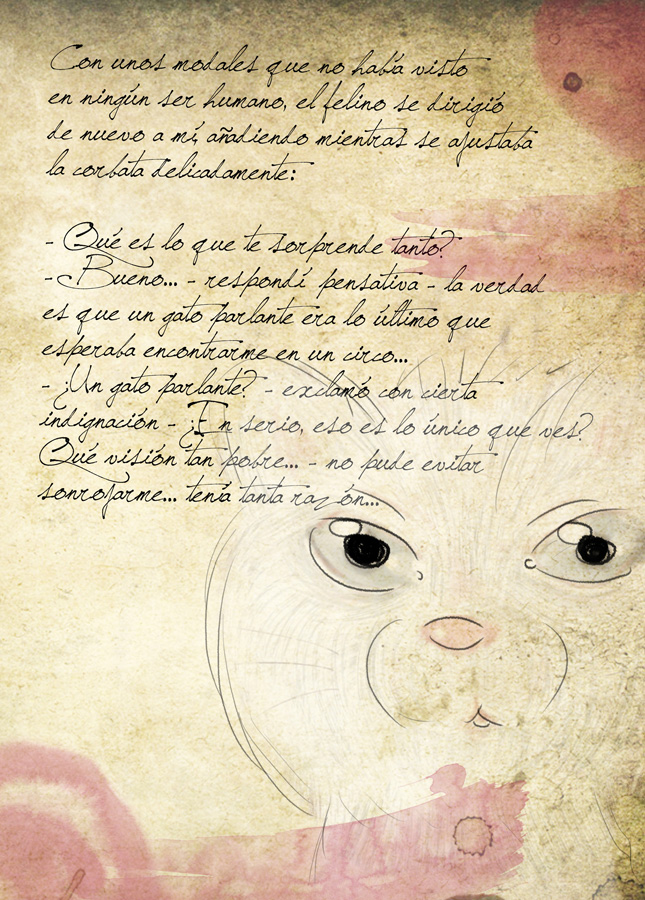 Con unos modales que no había visto
en ningún ser humano, el felino se dirigió
de nuevo a mí, añadiendo mientras se ajustaba
la corbata delicadamente:
- Qué es lo que te sorprende tanto?
- Bueno... - respondí pensativa - la verdad
es que un gato parlante era lo último que
esperaba encontrarme en un circo...
- ¡Un gato parlante? - exclamó con cierta
indignación - ¡En serio, eso es lo único que ves?
Qué visión tan pobre... - no pude evitar
sonrojarme... tenía tanta razón...